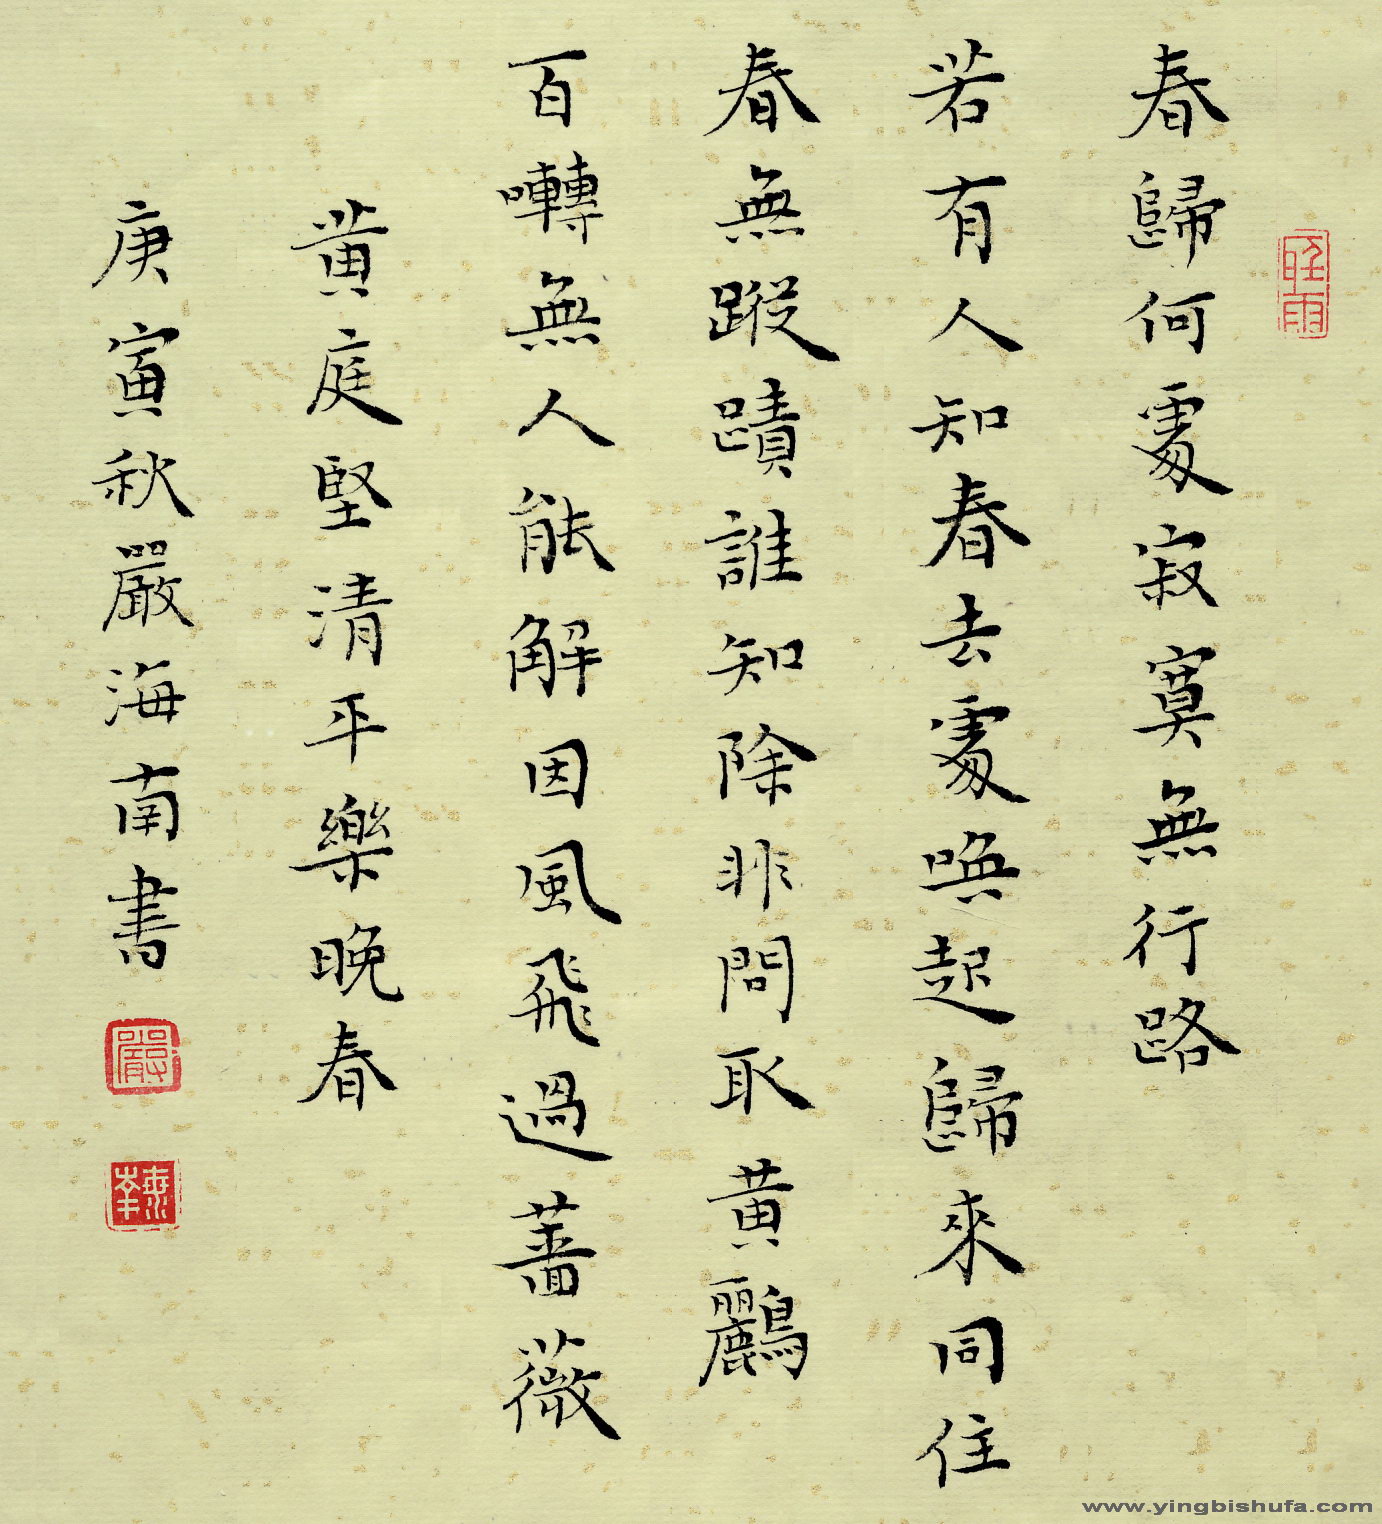 春歸何處寂寞無行路
若有人知春去處喚起歸來同住
春無蹤蹟誰知除非問取黄鸝
百囀無人能解因風飛過薔薇
黄庭堅清平樂晚春
庚寅秋嚴海南書
嚴
www.yingbishufa.com